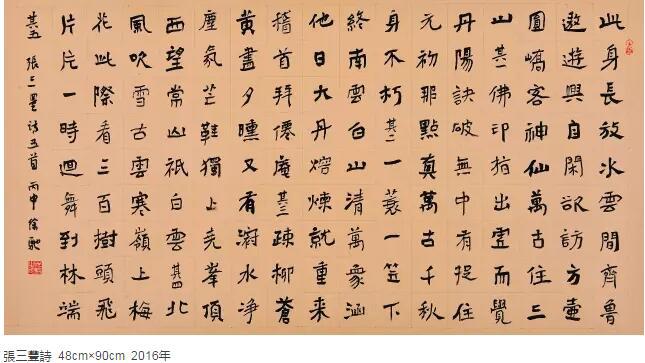 此身長放水雲間齊魯
遨遊興自閑欲訪方壺
圓嶠客神仙萬古住三
山其一佛印指出虛而覺
丹陽訣破無中有捉住
元初那點真萬古千秋
身不朽其二一蓑一笠下
終南雲白山清萬象涵
他日大丹熔煉就重来
稽首拜僊庵其三疎柳蒼
黄盡夕曛又有水淨
塵氛芒鞋獨上堯峯頂
西望常山祇白雲其四北
風吹雪古雲寒嶺上梅
花此際看三百樹頭飛
片片一時迴舞到林端
其五 張三豐诗五首 丙申 徐馳
張三豐詩 48cm×90cm 2016年